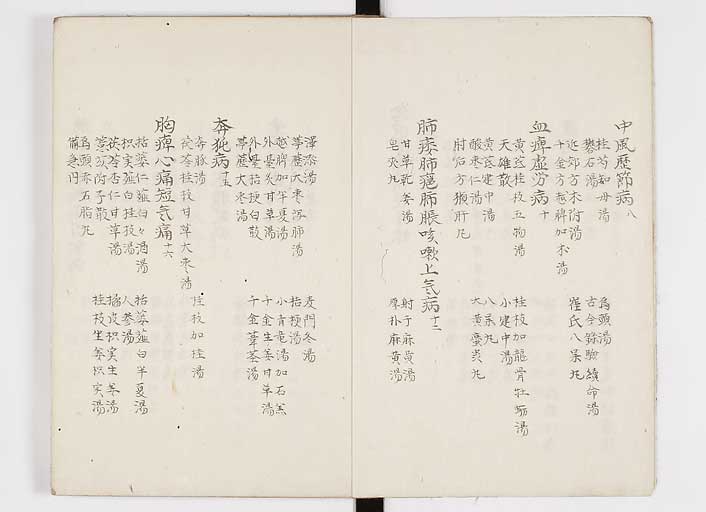 中風歷節病八
桂芍知母湯 烏頭湯
礬石湯 古今錄驗續命湯
近効方朮附湯 崔氏八味丸
千金方越脾加朮湯
血痺虛労病十
黄芪桂枝五物湯 桂枝加龍骨牡蛎湯
天雄散 小建中湯
黄芪建中湯 八味丸
酸棗仁湯 大黄䗪虫丸
肘后方獺肝丸
肺痿肺癰肺脹咳嗽上气病十二
甘草乾姜湯 射干麻黄湯
皂莢丸 厚朴麻黄湯
澤漆湯 麦門冬湯
葶藶大枣瀉肺湯 桔梗湯
越脾加半夏湯 小青竜湯加石羔
外臺炙甘草湯 千金生姜甘草湯
外臺桔梗白散 千金葦茎湯
葶藶大枣湯
奔㹠病十五
奔豚湯 桂枝加桂湯
茯苓桂枝甘草大枣湯
胸痺心痛短气痛十六
括蒌仁薤白々酒湯 括蒌薤白半夏湯
枳实薤白桂枝湯 人参湯
茯苓杏仁甘草湯 橘皮枳实生姜湯
薏苡附子散 桂枝生姜枳实湯
烏頭赤石脂丸
備急円